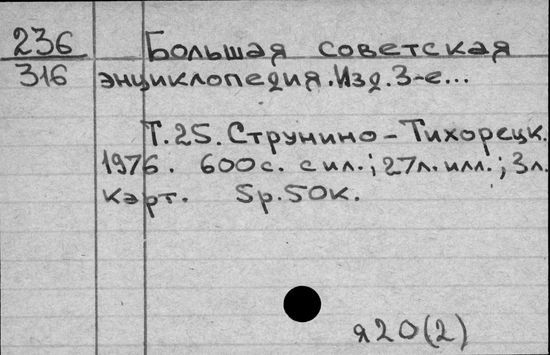 236
316
Большая советская
энциклопедия. Изд. 3-е...
Т. 25. Струнино - Тихорецк.
1976. 600с. с ил.; 27л. илл.; 3л.
карт. 5р. 50к.
я20(2)